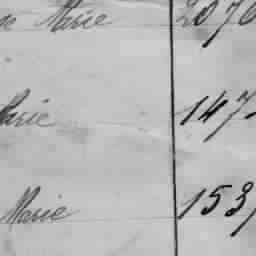 Marie 2070
Marie 147
Marie 153